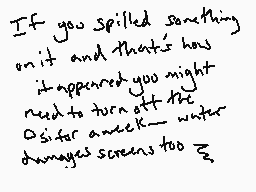 If you spilled something
on it and that's how
it appeared you might
need to turn off the
Dsi for a week— water
damages screens too